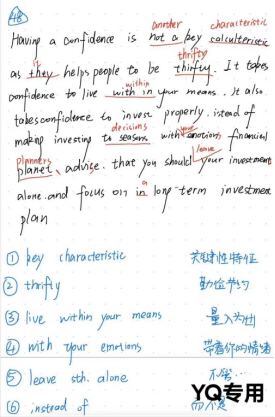 48
another characteristic
Having a confidence is not a pey calculteristic
it thrifty
as they helps people to be thirfty. It takes
within
confidence to live with in your means. It also
takes confidence to invest properly. istead of
decisions your
making investing to seasons with emotions, financial
planners leave
planet advise. that you should your investment
a
alone. and focus on in long-term investment
plan
① key characteristic 关键性特征
② thrifty 勤俭节约
③ live within your means 量入为出
④ with your emotions 带着你的情绪
⑤ leave sth. alone 不管…
⑥ instead of 而不是
YQ专用